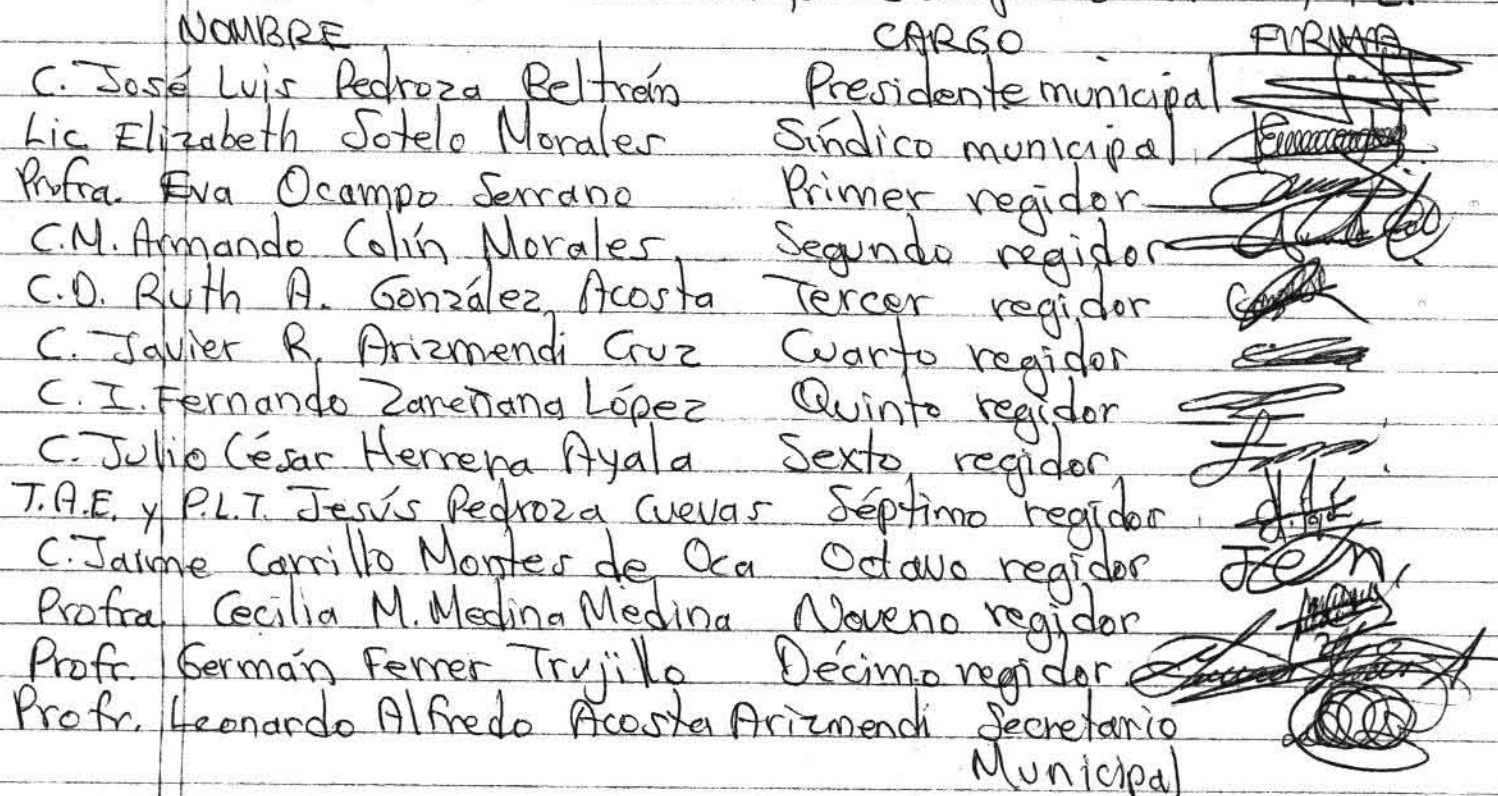 NOMBRE CARGO FIRMA
C. José Luis Pedroza Beltrán Presidente municipal
Lic Elizabeth Sotelo Morales Síndico municipal
Profra. Eva Ocampo Serrano Primer regidor
C.M. Armando Colín Morales Segundo regidor
C.D. Ruth A. González Acosta Tercer regidor
C. Javier R. Arizmendi Cruz Cuarto regidor
C. I. Fernando López Quinto regidor
C. Julio César Herrera Ayala Sexto regidor
T.A.E. y P.L.T. Jesús Pedroza Cuevas Séptimo regidor
C. Jaime Carrillo Montes de Oca Octavo regidor
Profra Cecilia M. Medina Medina Noveno regidor
Profr. Germán Ferrer Trujillo Décimo regidor
Profr. Leonardo Alfredo Acosta Arizmendi Secretario
Municipal